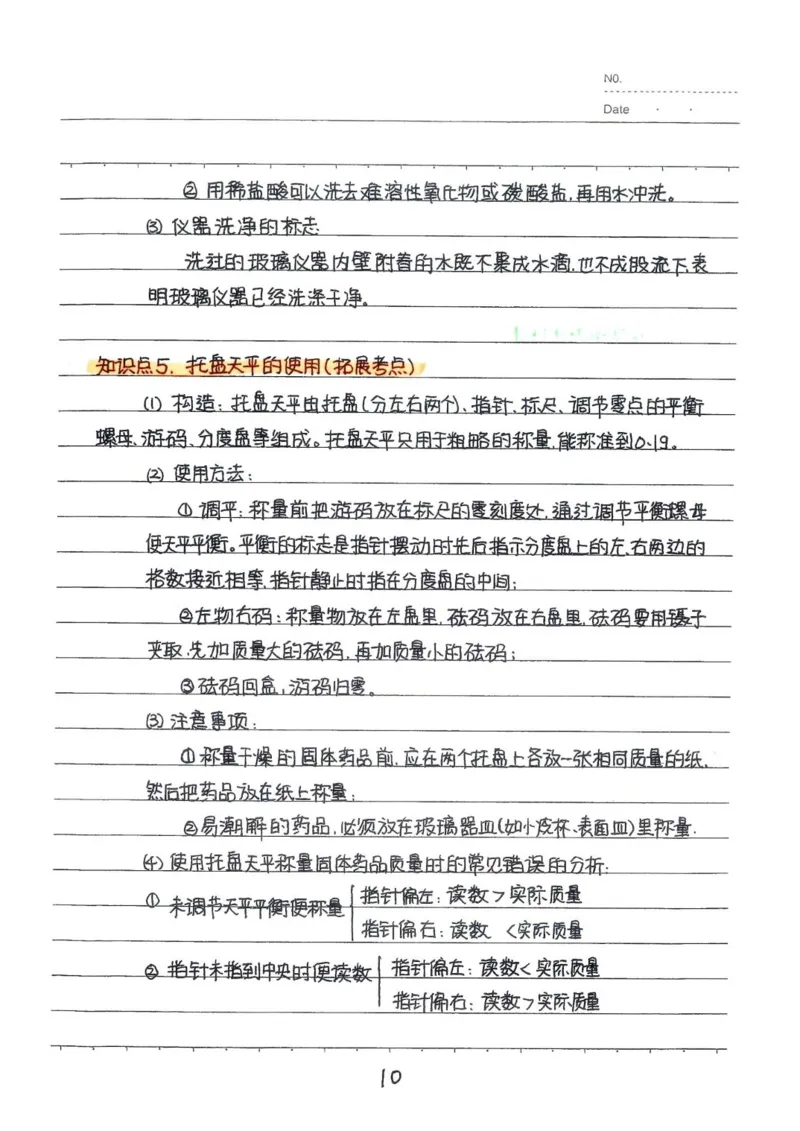 NO.
Date · ·
② 用稀盐酸可以洗去难溶性氧化物或碳酸盐,再用水冲洗。
③ 仪器洗净的标志
洗过的玻璃仪器内壁附着的水既不聚成水滴,也不成股流下,表
明玻璃仪器已经洗涤干净。
知识点5. 托盘天平的使用(拓展考点)
(1) 构造:托盘天平由托盘(分左右两个)、指针、标尺、调节零点的平衡
螺母、游码、分度盘等组成。托盘天平只用于粗略的称量,能称准到0.1g。
(2) 使用方法:
① 调平:称量前把游码放在标尺的零刻度处,通过调节平衡螺母
使天平平衡。平衡的标志是指针摆动时先后指示分度盘上的左、右两边的
格数接近相等,指针静止时指在分度盘的中间;
②左物右码:称量物放在左盘里,砝码放在右盘里,砝码要用镊子
夹取.先加质量大的砝码,再加质量小的砝码;
③砝码回盒,游码归零。
(3) 注意事项:
①称量干燥的固体药品前,应在两个托盘上各放一张相同质量的纸,
然后把药品放在纸上称量;
②易潮解的药品,必须放在玻璃器皿(如小烧杯、表面皿)里称量.
(4) 使用托盘天平称量固体药品质量时的常见错误的分析:
① 未调节天平平衡便称量 指针偏左:读数>实际质量
指针偏右:读数 <实际质量
② 指针未指到中央时便读数 指针偏左:读数<实际质量
指针偏右:读数>实际质量
10